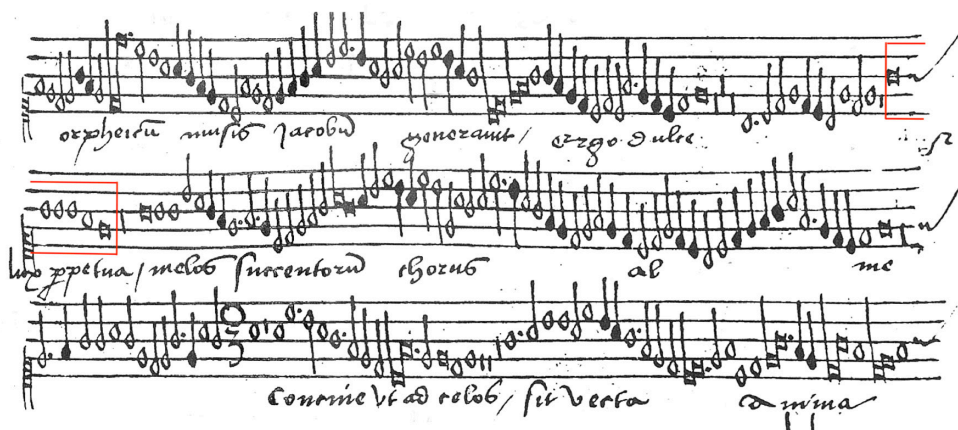 orpheicū musis Jacobū generavit / ergo dulce
lux ppetua / melos succentorū chorus al me
Concine vt ad celos / sit vecta anima